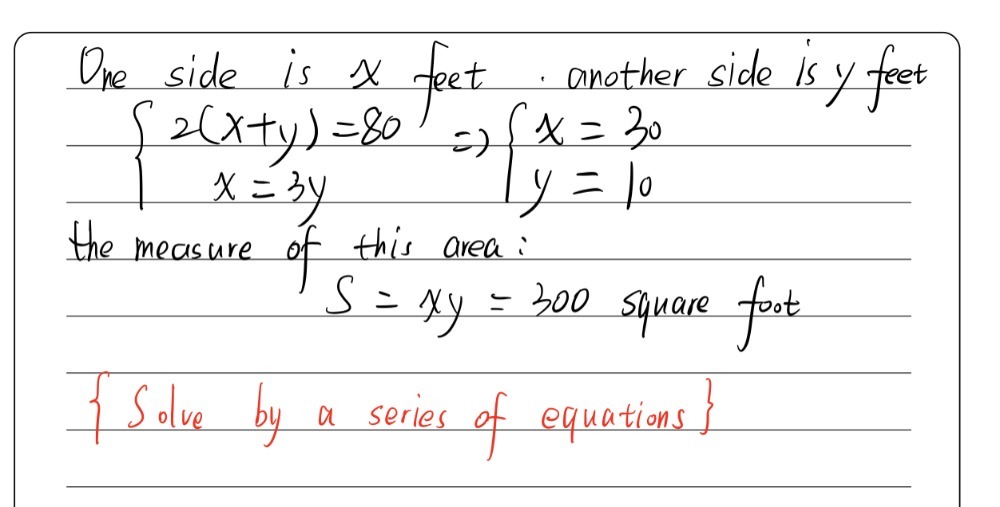 One side is x feet . another side is y feet
{ 2(x+y) = 80 => { x = 30
x = 3y y = 10
the measure of this area :
S = xy = 300 square foot
{ Solve by a series of equations }